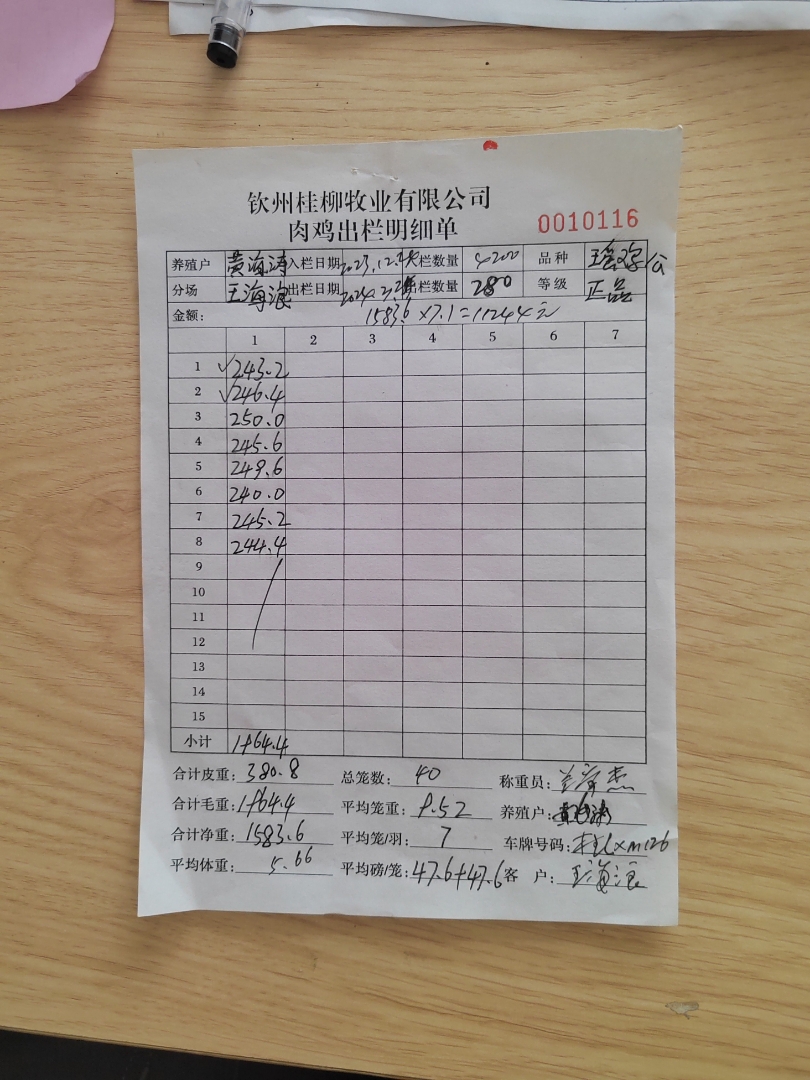 钦州桂柳牧业有限公司
肉鸡出栏明细单 0010116
养殖户 黄海涛 入栏日期 2023.12. 栏数量 4200 品种 公
分场 王海浪 出栏日期 2024. 出栏数量 280 等级 正品
金额: 1583.6×7.1=11244元
1 2 3 4 5 6 7
1 √243.2
2 √246.4
3 250.0
4 245.6
5 249.6
6 240.0
7 245.2
8 244.4
9
10
11
12
13
14
15
小计 1964.4
合计皮重: 380.8 总笼数: 40 称重员:
合计毛重: 1964.4 平均笼重: 9.52 养殖户: 黄海涛
合计净重: 1583.6 平均笼/羽: 7 车牌号码:
平均体重: 5.66 平均磅/笼: 47.6+47.6 客 户: 王海浪